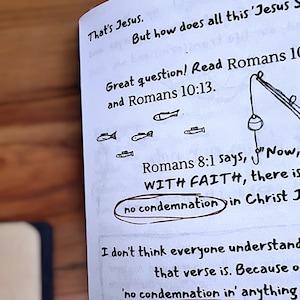 That's Jesus.
But how does all this 'Jesus S
Great question! Read Romans 10
and Romans 10:13.
Romans 8:1 says, "Now,
WITH FAITH, there is
no condemnation in Christ J
I don't think everyone understand
that verse is. Because o
'no condemnation in' anything